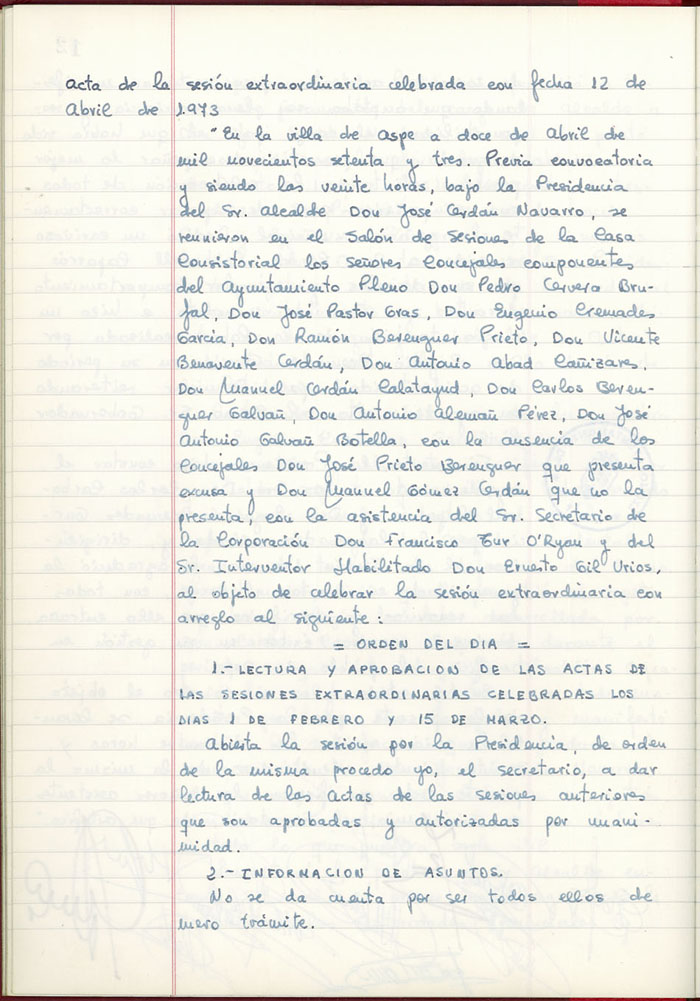 acta de la sesión extraordinaria celebrada con fecha 12 de
Abril de 1.973
"En la villa de Aspe a doce de Abril de
mil novecientos setenta y tres. Previa convocatoria
y siendo las veinte horas, bajo la Presidencia
del Sr. Alcalde Don José Cerdán Navarro, se
reunieron en el Salón de Sesiones de la Casa
Consistorial los señores Concejales componentes
del Ayuntamiento Pleno Don Pedro Cervera Bru-
fal, Don José Pastor Gras, Don Eugenio Cremades
García, Don Ramón Berenguer Prieto, Don Vicente
Benavente Cerdán, Don Antonio Abad Cañizares,
Don Manuel Cerdán Calatayud, Don Carlos Beren-
guer Galvañ, Don Antonio Alemañ Pérez, Don José
Antonio Galvañ Botella, con la ausencia de los
Concejales Don José Prieto Berenguer que presenta
excusa y Don Manuel Gómez Cerdán que no la
presenta, con la asistencia del Sr. Secretario de
la Corporación Don Francisco Tur O'Ryan y del
Sr. Interventor Habilitado Don Ernesto Gil Urios,
al objeto de celebrar la sesión extraordinaria con
arreglo al siguiente:
= ORDEN DEL DIA =
1.- LECTURA Y APROBACION DE LAS ACTAS DE
LAS SESIONES EXTRAORDINARIAS CELEBRADAS LOS
DIAS 1 DE FEBRERO Y 15 DE MARZO.
Abierta la sesión por la Presidencia, de orden
de la misma procedo yo, el secretario, a dar
lectura de las Actas de las sesiones anteriores
que son aprobadas y autorizadas por unani-
midad.
2.- INFORMACION DE ASUNTOS.
No se da cuenta por ser todos ellos de
mero trámite.